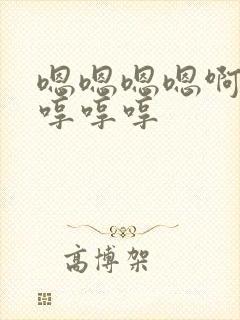 嗯嗯嗯嗯啊
哼哼哼
高博架